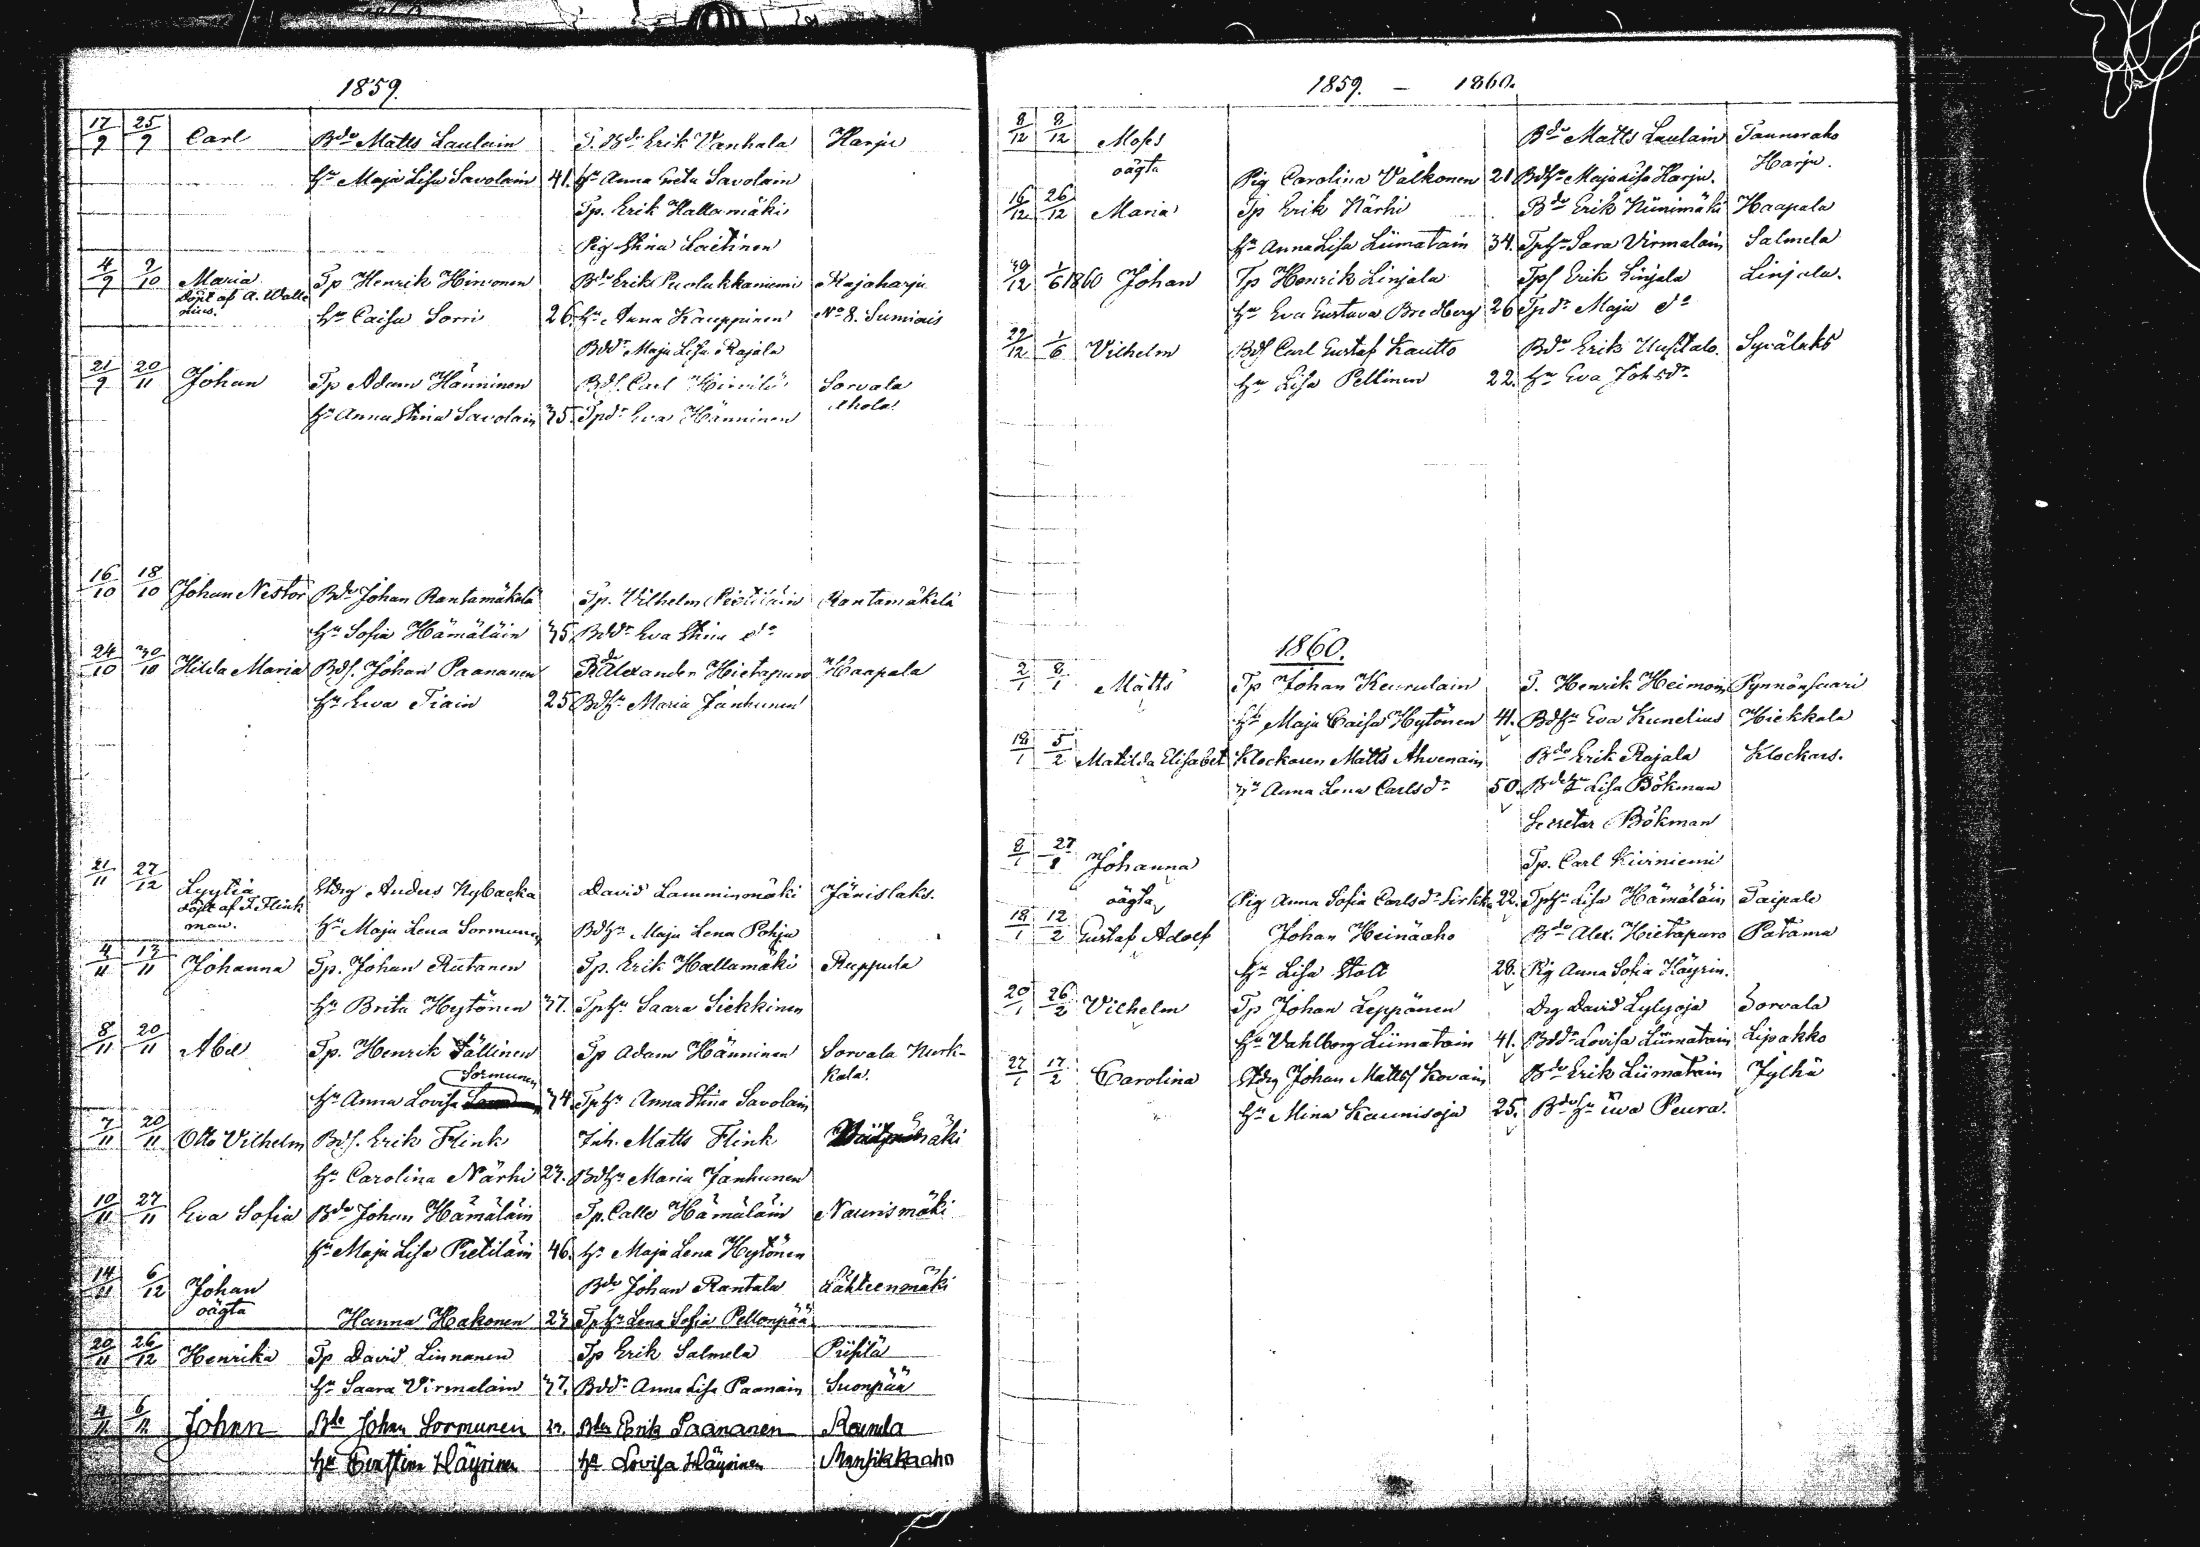 1859.
17/9 25/9 Carl Bde Matts Laulain T. Bde Erik Vanhala Harju
Hu Maja Lisa Savolain 41. Hu Anna Greta Savolain
Tp. Erik Hallamäki
Pig Stina Laitinen
4/9 9/10 Maria Tp Henrik Hinsonen Bde Erik Puolukkaniemi Rajaharju
döpt af A. Walle
nius. Hu Caisa Sorri 26. Hu Anna Kauppinen No 8. Sumiais
Bddr Maja Lisa Rajala
21/9 20/11 Johan Tp Adam Hänninen Bds. Carl Sorvala
Hu Anna Stina Savolain 35. Tpdr Eva Hänninen Ahola
16/10 18/10 Johan Nestor Bde Johan Rantamäkelä Tp. Vilhelm Pietiläin Rantamäkelä
Hu Sofia Hämäläin 35. Bddr Eva Stina do
24/10 30/10 Hilda Maria Bds. Johan Paananen Bde Alexander Hietapuro Haapala
Hu Eva Tiain 25 Bdhu Maria Janhunen
21/11 27/12 Lyytia Stdrg Anders Nybacka David Lamminmäki Jänislaks.
döpt af F. Flink
man. Hu Maja Lena Sormunen Bdhu Maja Lena Pohja
4/11 13/11 Johanna Tp. Johan Rutanen Tp. Erik Hallamäki Ruppula
Hu Brita Hytönen 37. Tphu Saara Siekkinen
8/11 20/11 Abel Tp. Henrik Tällinen Tp Adam Hänninen Sorvala Kurk-
Sormunen kala.
Hu Anna Lovisa 34. Tphu Anna Stina Savolain
7/11 20/11 Otto Vilhelm Bds. Erik Flink Inh. Matts Flink
Hu Carolina Närhi 23. Bdhu Maria Janhunen
10/11 27/11 Eva Sofia Bde Johan Hämäläin Tp. Calle Hämäläin Naurismäki
Hu Maja Lisa Pietiläin 46. Hu Maja Lena Hytönen
14/11 6/12 Johan Bde Johan Rantala Lähteenmäki
oägta Hanna Hakonen 23 Tphu Lena Sofia Pellonpää
20/11 26/12 Henrika Tp David Linnanen Tp Erik Salmela Piisilä
Hu Saara Virmalain 37. Bddr Anna Lisa Paanain Suonpää
Johan Bde Johan Sormunen Bde Erik Paananen Rounala
Hu Kerstin Häyrinen Hu Lovisa Häyrinen Mansikkaaho
1859. - 1860.
8/12 8/12 Moses Bde Matts Laulain Tannoraho
oägta Pig Carolina Valkonen 21 Bdhu Maja Lisa Harju. Harju.
16/12 26/12 Maria Tp Erik Närhi Bde Erik Niinimäki Haapala
Hu Anna Lisa Liimatain 34. Tphu Sara Virmalain Salmela
29/12 1/6 1860 Johan Tp Henrik Linjala Tps Erik Linjala Linjala.
Hu Eva Gustava Bredberg 26 Tpdr Maja do
29/12 1/6 Vilhelm Bds Carl Gustaf Kautto Bde Erik Uusitalo. Syväluks
Hu Lisa Pellinen 22. Hu Eva Johsdr
1860.
2/1 8/1 Matts Tp Johan Keurulain T. Henrik Heimoin Pynnönsaari
Hu Maja Caisa Hytönen 41. Bdhu Eva Kunelius Hiekkala
19/1 5/2 Matilda Elisabet Klockaren Matts Ahvenain Bde Erik Rajala Klockars.
Hu Anna Lena Carlsdr 50. Bdehu Lisa Bökman
Secretar Bökman
8/1 27/1 Johanna Tp. Carl Kiviniemi
oägta Pig Anna Sofia Carlsdr Sirkka 22. Tphu Lisa Hämäläin Taipale
18/1 12/2 Gustaf Adolf Johan Heinäaho Bde Alex. Hietapuro Patama
Hu Lisa Stolt 28. Pig Anna Sofia Häyrin.
20/1 26/2 Vilhelm Tp Johan Leppänen Drg David Lylyoja Sorvala
Hu Vahlborg Liimatain 41. Bddr Lovisa Liimatain Lipakko
27/1 17/2 Carolina Stdrg Johan Mattss Kovain Bde Erik Liimatain Jylhä
Hu Mina Kaunisoja 25. Bdehu Eva Peura.